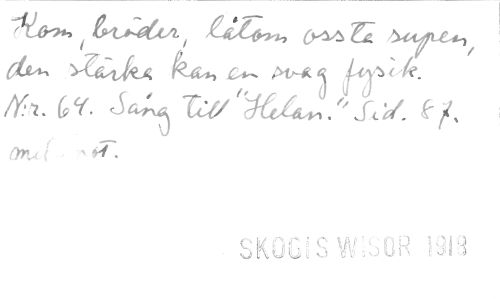 Kom, bröder, låtom oss ta supen,
den stärka kan en svag fysik.
N:r. 64. Sång till "Helan." Sid. 87.
mel. not.
SKOGIS WISOR 1918